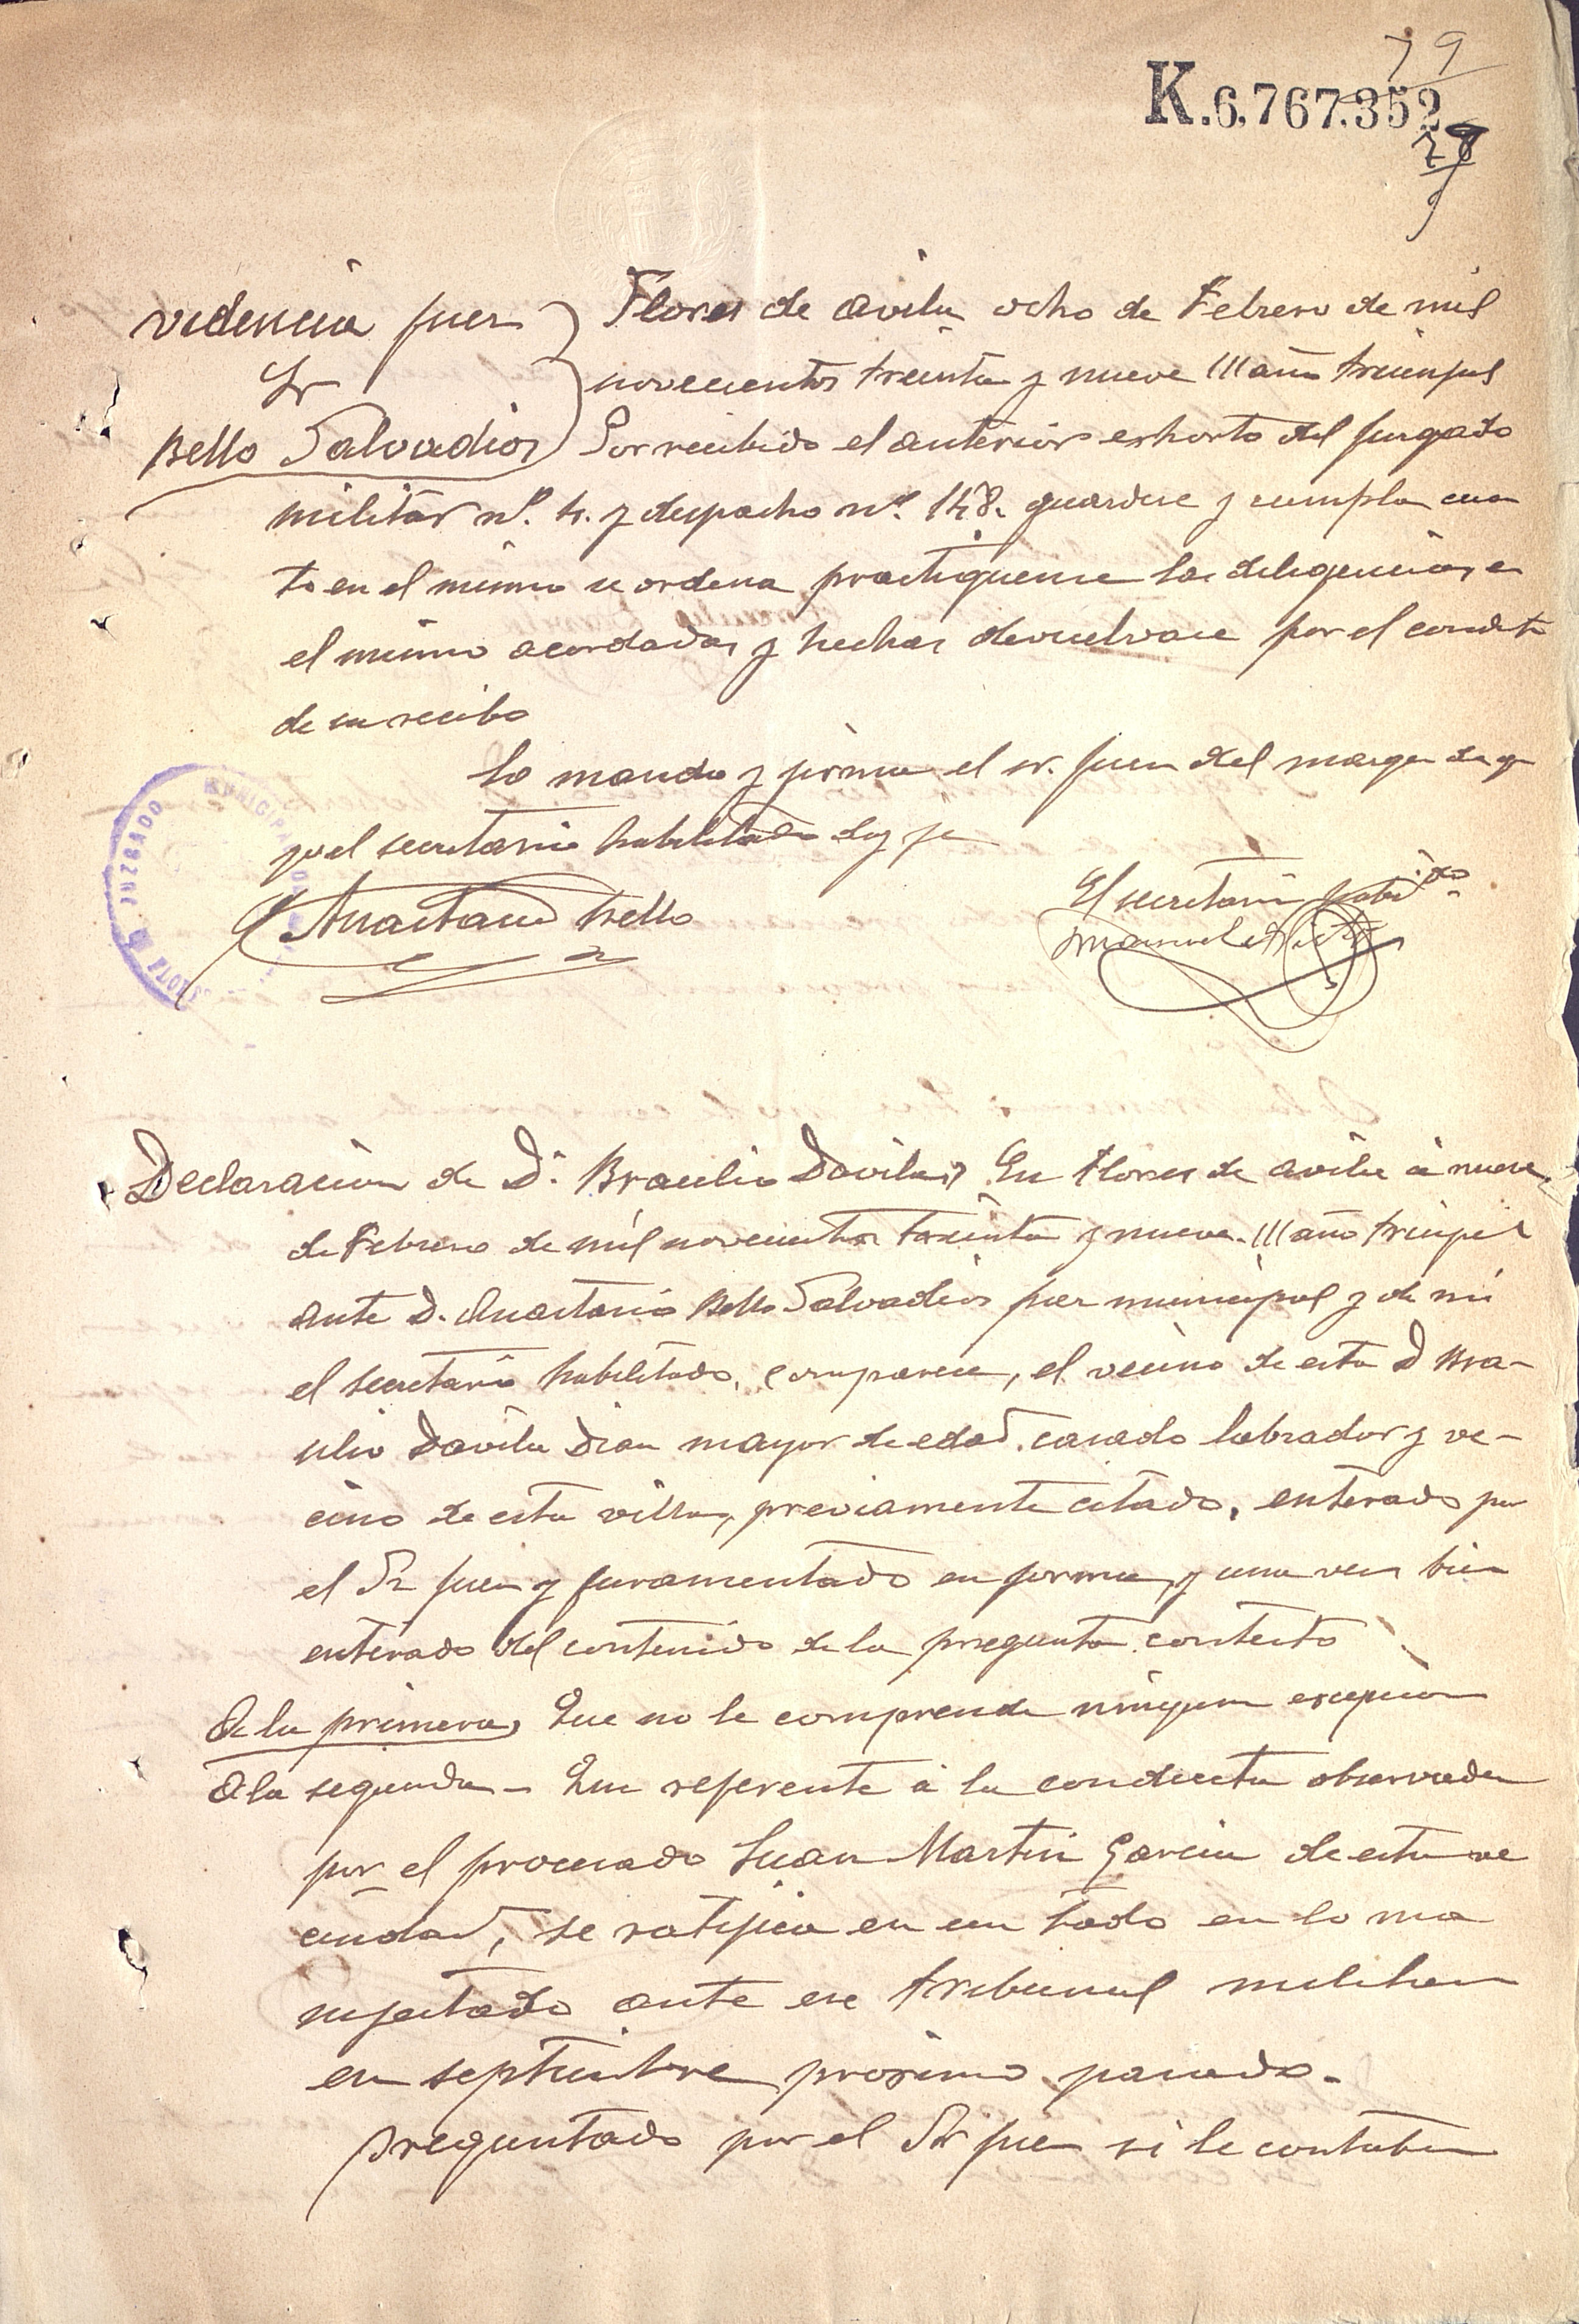 79
K.6,767.352
78
videncia juez Flores de Avila ocho de Febrero de mil
Sr novecientos treinta y nueve III año triunfal
Bello Salvadios Por recibido el anterior exhorto del juzgado
militar nº. 4. y despacho nº. 148. guardese y cumpla cuan
to en el mismo se ordena practiquense las diligencias en
el mismo acordadas y hechas devuelvase por el condcto
de su recibo
Lo manda y firma el sr. juez del margen de q
yo el secretario habilitado doy fe
Anastasio Bello
El secretario habi.tdo
Manuel
JUZGADO MUNICIPAL
Declaracion de D. Braulio Davila, En Flores de Avila á nueve
de Febrero de mil novecientos treinta y nueve. III año triunfal
ante D. Anastasio Bello Salvadios juez municipal y de mi
el secretario habilitado, comparece, el vecino de esta D Bra-
ulio Davila Dian mayor de edad. casado labrador y ve-
cino de esta villa, previamente citado, enterado por
el Sr juez y juramentado en forma, y una vez bien
enterado del contenido de la pregunta contesto
A la primera, Que no le comprende ninguna escepcion
A la segunda - Que referente á la conducta observada
por el procesado Juan Martin Garcia de esta ve
cindad, se ratifica en un todo en lo ma
nifestado ante ese tribunal militar
en septiembre proximo pasado.
Preguntado por el Sr juez si le constaba